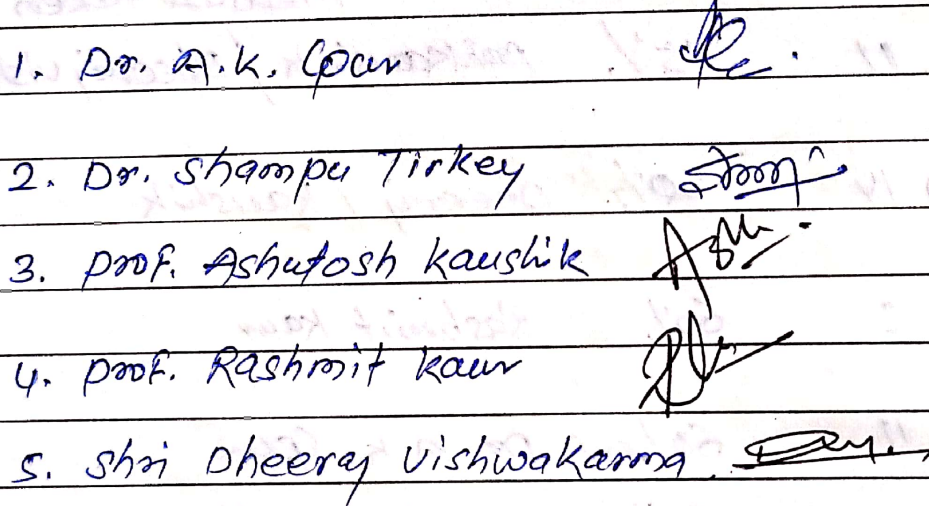 1. Dr. A.K.
2. Dr. Shampu Tirkey
3. Prof. Ashutosh Kaushik
4. Prof. Rashmit Kaur
5. Shri Dheeraj Vishwakarma